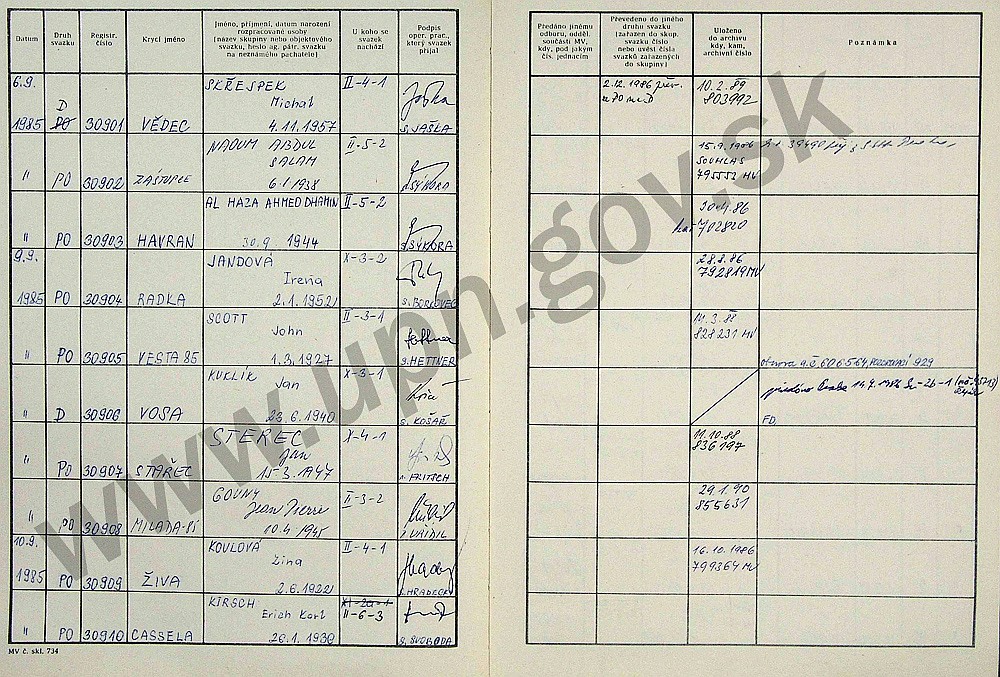 Datum
Druh svazku
Registr. číslo
Krycí jméno
Jméno, příjmení, datum narození rozpracované osoby (název skupiny nebo objektového svazku, heslo ag. pátr. svazku na neznámého pachatele)
U koho se svazek nachází
Podpis oper. prac., který svazek přijal
Předáno jinému odboru, odděl. součásti MV, kdy, pod jakým čís. jednacím
Převedeno do jiného druhu svazku (zařazen do skup. svazku číslo nebo uvést čísla svazků zařazených do skupiny)
Uloženo do archivu kdy, kam, archivní číslo
Poznámka
6.9. 1985 D PO 30901 VĚDEC SKŘESPEK Michal 4.11.1957 II-4-1 S. JAŠKA
2.12.1986 10.2.89 803992
" PO 30902 ZÁSTUPCE NAOUM ABDUL SALAM 6.1.1938 II-5-2 SÝKORA
15.9.1986 SOUHLAS 795552 MV
" PO 30903 HAVRAN AL HAZA AHMED DHAMIN 30.9 1944 II-5-2 SÝKORA
30.4.86 702820
9.9. 1985 PO 30904 RADKA JANDOVÁ Irena 2.1.1952 X-3-2 S. BORKOVEC
28.8.86 792819 MV
" PO 30905 VESTA 85 SCOTT John 1.3.1927 II-3-1 S. HETTNER
11.3.88 828231 MV
obnova a.č 606564, POZORHODÍ 929
" D 30906 VOSA KUKLÍK Jan 23.6.1940 X-3-1 S. KOŠAŘ
FD.
" PO 30907 STAŘEC STEREC Jan 15.3.1947 X-4-1 FRITSCH
11.10.88 836197
" PO 30908 MILADA-PÍ GOUNY Jean Pierre 10.4.1945 II-3-2
29.1.90 855631
10.9. 1985 PO 30909 ŽIVA KOULOVÁ Zina 2.6.1922 II-4-1 S. HRADECKÝ
16.10.1986 799364 MV
" PO 30910 CASSELA KIRSCH Erich Karl 26.1.1930 XI-2a-1 II-6-3 S. SVOBODA
MV č. skl. 734
www.upn.gov.sk